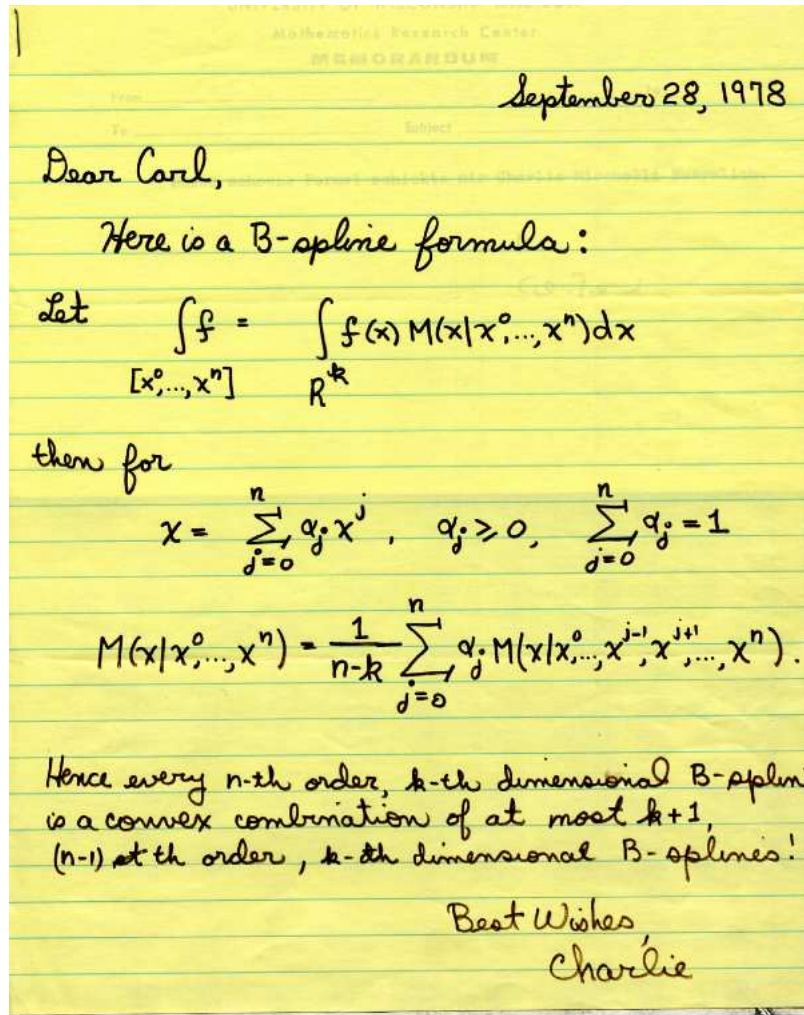 Mathematics Research Center
MEMORANDUM
From
To Subject
September 28, 1978
Dear Carl,
Here is a B-spline formula:
Let ∫_{[x⁰,...,xⁿ]} f = ∫_{R^k} f(x) M(x|x⁰,...,xⁿ)dx
then for
x = ∑_{j=0}^{n} α_j x^j , α_j ⩾ 0, ∑_{j=0}^{n} α_j = 1
M(x|x⁰,...,xⁿ) = 1/(n-k) ∑_{j=0}^{n} α_j M(x|x⁰,...,x^{j-1},x^{j+1},...,xⁿ).
Hence every n-th order, k-th dimensional B-splin
is a convex combination of at most k+1,
(n-1) st th order, k-th dimensional B-splines!
Best Wishes,
Charlie